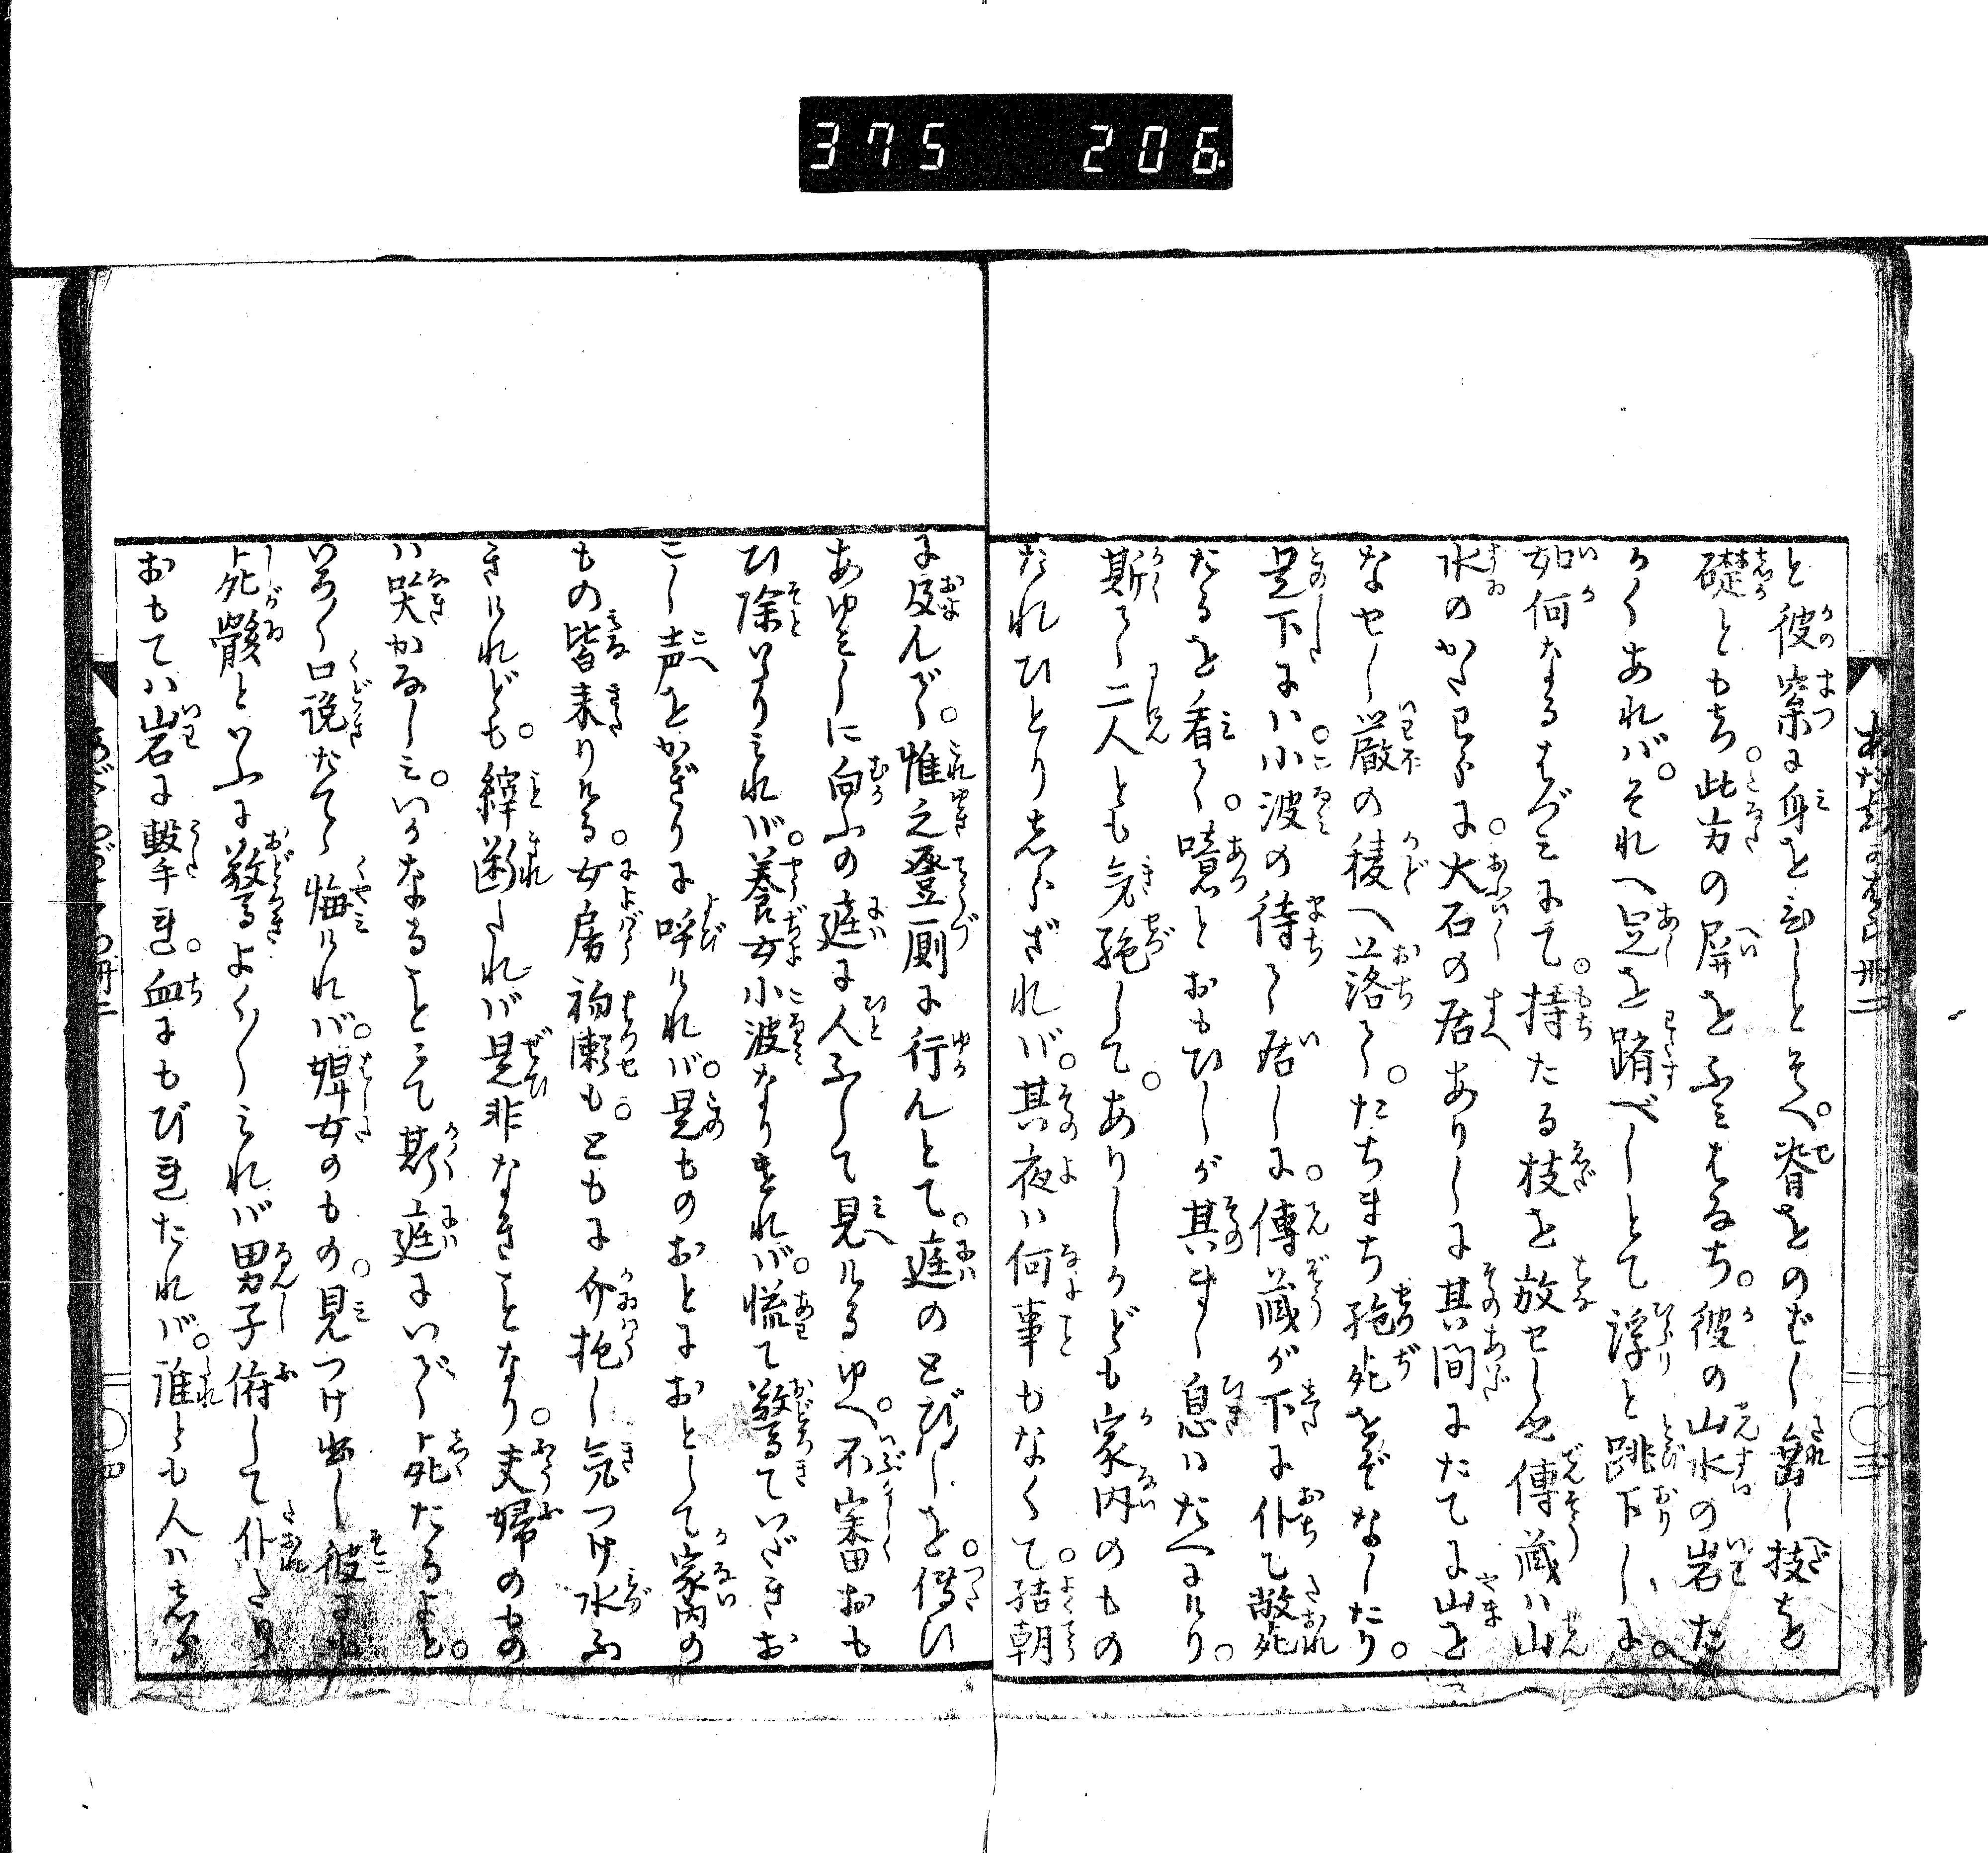 375 206
と彼案に身をむしとそへ。脊をのばし露し技を
礎ともち。此方の屏をふみはなち。彼の山水の岩な
かくあれバ。それへ足を踏べしとて浮と跳下しに。
如何なるはづミにて。持たる枝を放せしや傳蔵ハ山
水のかたはらに。大石の居ありしに其間にたてに山を
なせし巌の稜へ落て。たちまち絶死をぞなしたり。
是下にハ小波の待て居しに。傳蔵が下に仆て斃死
たるを看て。噫とおもひしが其まゝ息ハたへにけり。
斯て二人とも気絶して。ありしかども家内のもの
たれひとりしらざれバ。其夜ハ何事もなくて。結朝
に及んで。惟之登厠に行んとて。庭のとびしを。傳ひ
あゆミしに向ふの庭に人ふして見へけるゆへ。不審おも
ひ除いりミれバ。養女小波なりければ。慌て驚ていだきお
こし声をかぎりに呼けれバ。是ものおとにおとして家内の
もの皆来りける。女房初瀬も。ともに介抱し気つけ水ふ
きけれども。縡断たれバ是非なきことなり。夫婦のもの
ハ哭かなしミ。いかなることにて斯庭にいで死たるよと。
いろ〳〵口説たて悔けれバ。婢女のもの。見つけ出し彼に
死骸といふに驚よく〳〵ミれバ男子俯して仆たり
おもてハ岩に撃れ。血にもびれたれバ。誰とも人ハしら